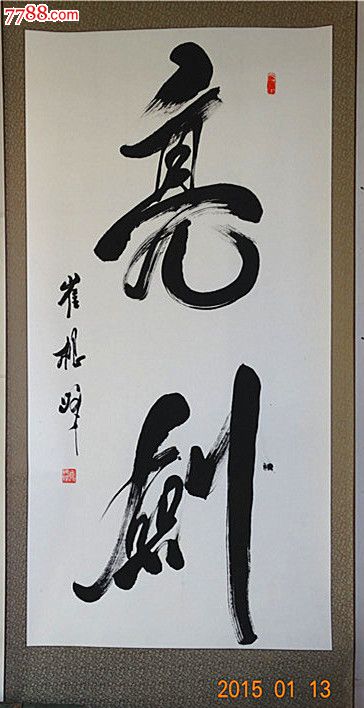 7788.com
亮剑
崔
2015 01 13